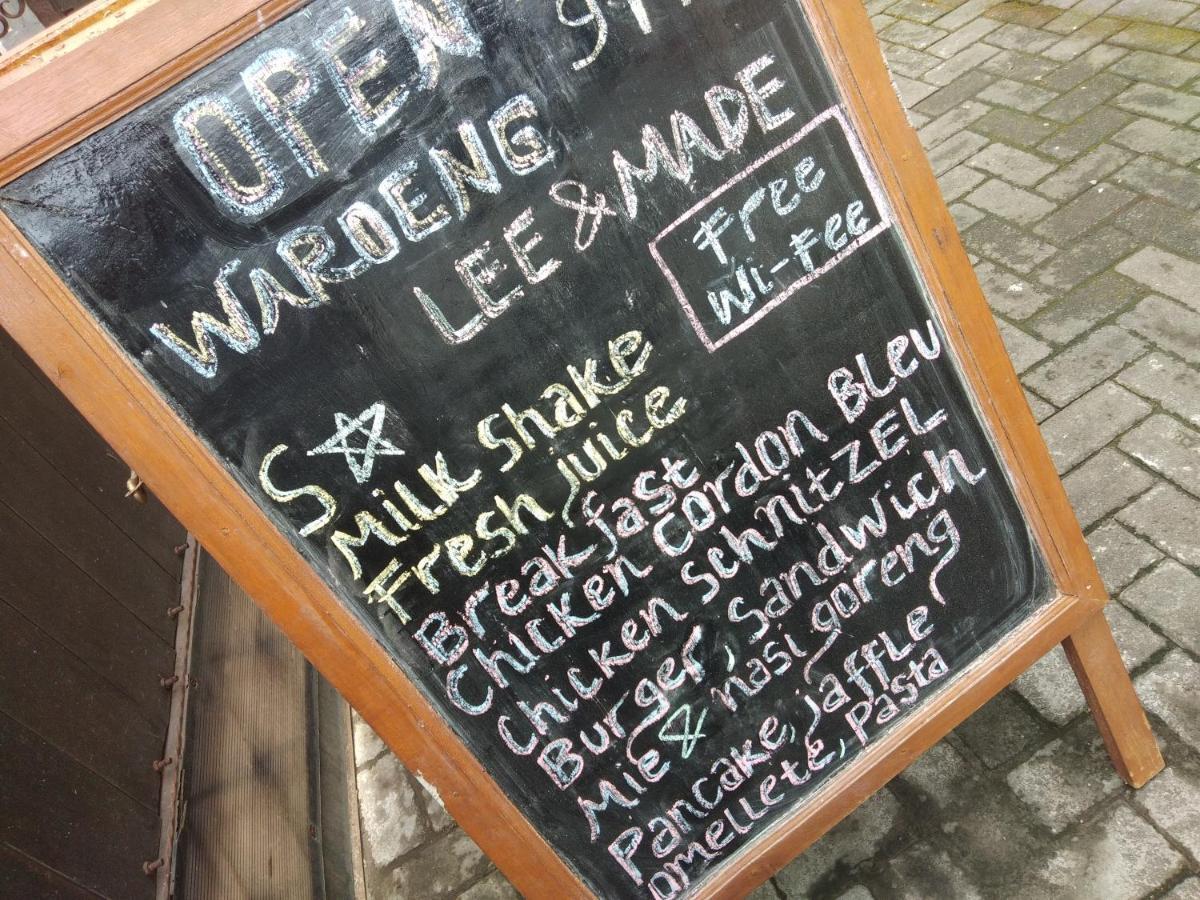 OPEN
WAROENG
LEE & MADE
Free
Wi-Fee
S
Milk Shake
Fresh juice
Breakfast
Chicken Cordon Bleu
Chicken SchnitZEL
Burger, Sandwich
Mie & nasi goreng
Pancake, jaffle
omellete, pasta